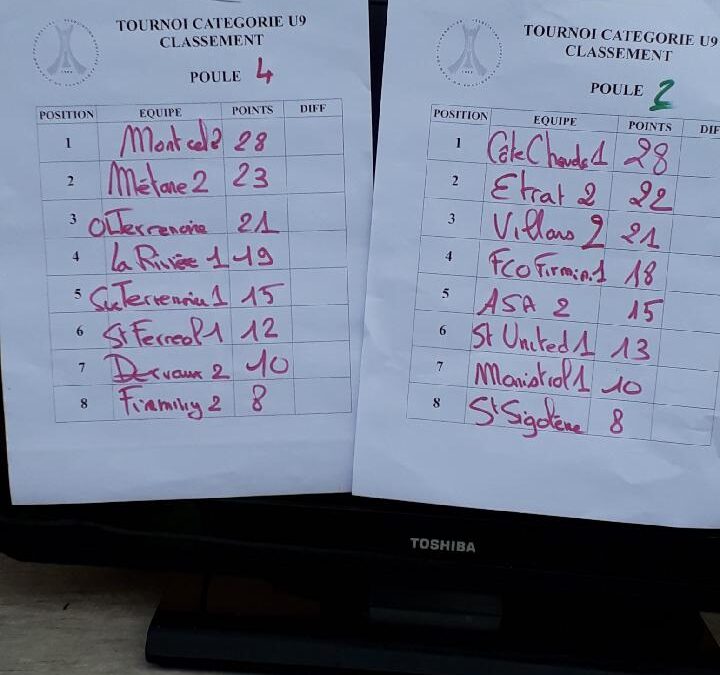 TOURNOI CATEGORIE U9
CLASSEMENT
POULE 4
POSITION EQUIPE POINTS DIFF
1 Montcel 2 28
2 Métare 2 23
3 OLTerrenoire 21
4 La Rivière 1 19
5 Terrenoire 1 15
6 St Ferreol 1 12
7 Dervaux 2 10
8 Firminy 2 8
TOURNOI CATEGORIE U9
CLASSEMENT
POULE 2
POSITION EQUIPE POINTS DIF
1 Côte Chaude 1 28
2 Etrat 2 22
3 Villars 2 21
4 FCO Firmin. 1 18
5 ASA 2 15
6 St United 1 13
7 Monistrol 1 10
8 St Sigolène 8
TOSHIBA